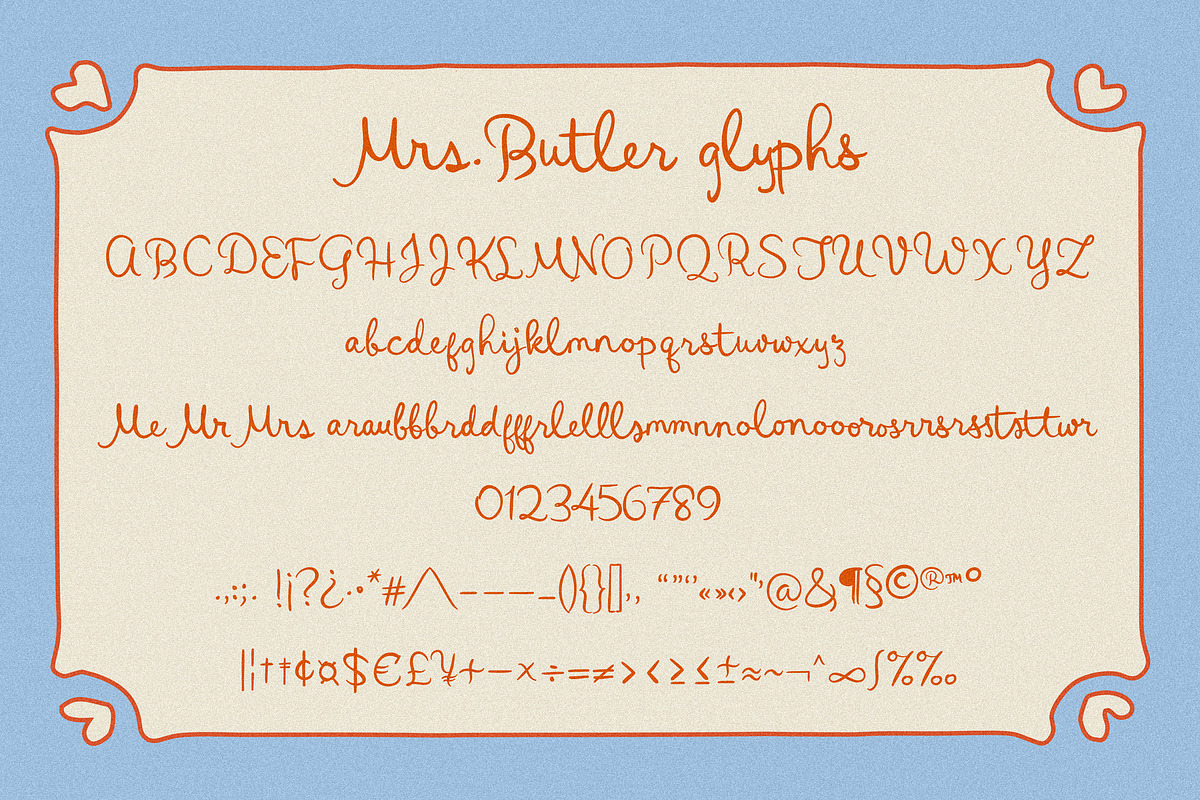 Mrs. Butler glyphs
ABCDEFGHIJKLMNOPQRSTUVWXYZ
abcdefghijklmnopqrstuvwxyz
Me Mr Mrs araubbbrddfffrlelllsmmnnolonooorosrrsrsststtwr
0123456789
.,:;. !¡?¿··*#/\---_(){}[],, “”‘’«»‹›"'@&¶§©®™°
|¦†‡¢¤$€£¥+−×÷=≠><≥≤±≈~¬^∞∫%‰